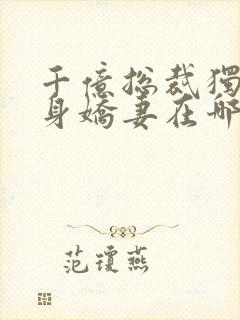 千億總裁獨
身嬌妻在哪
范瓊燕